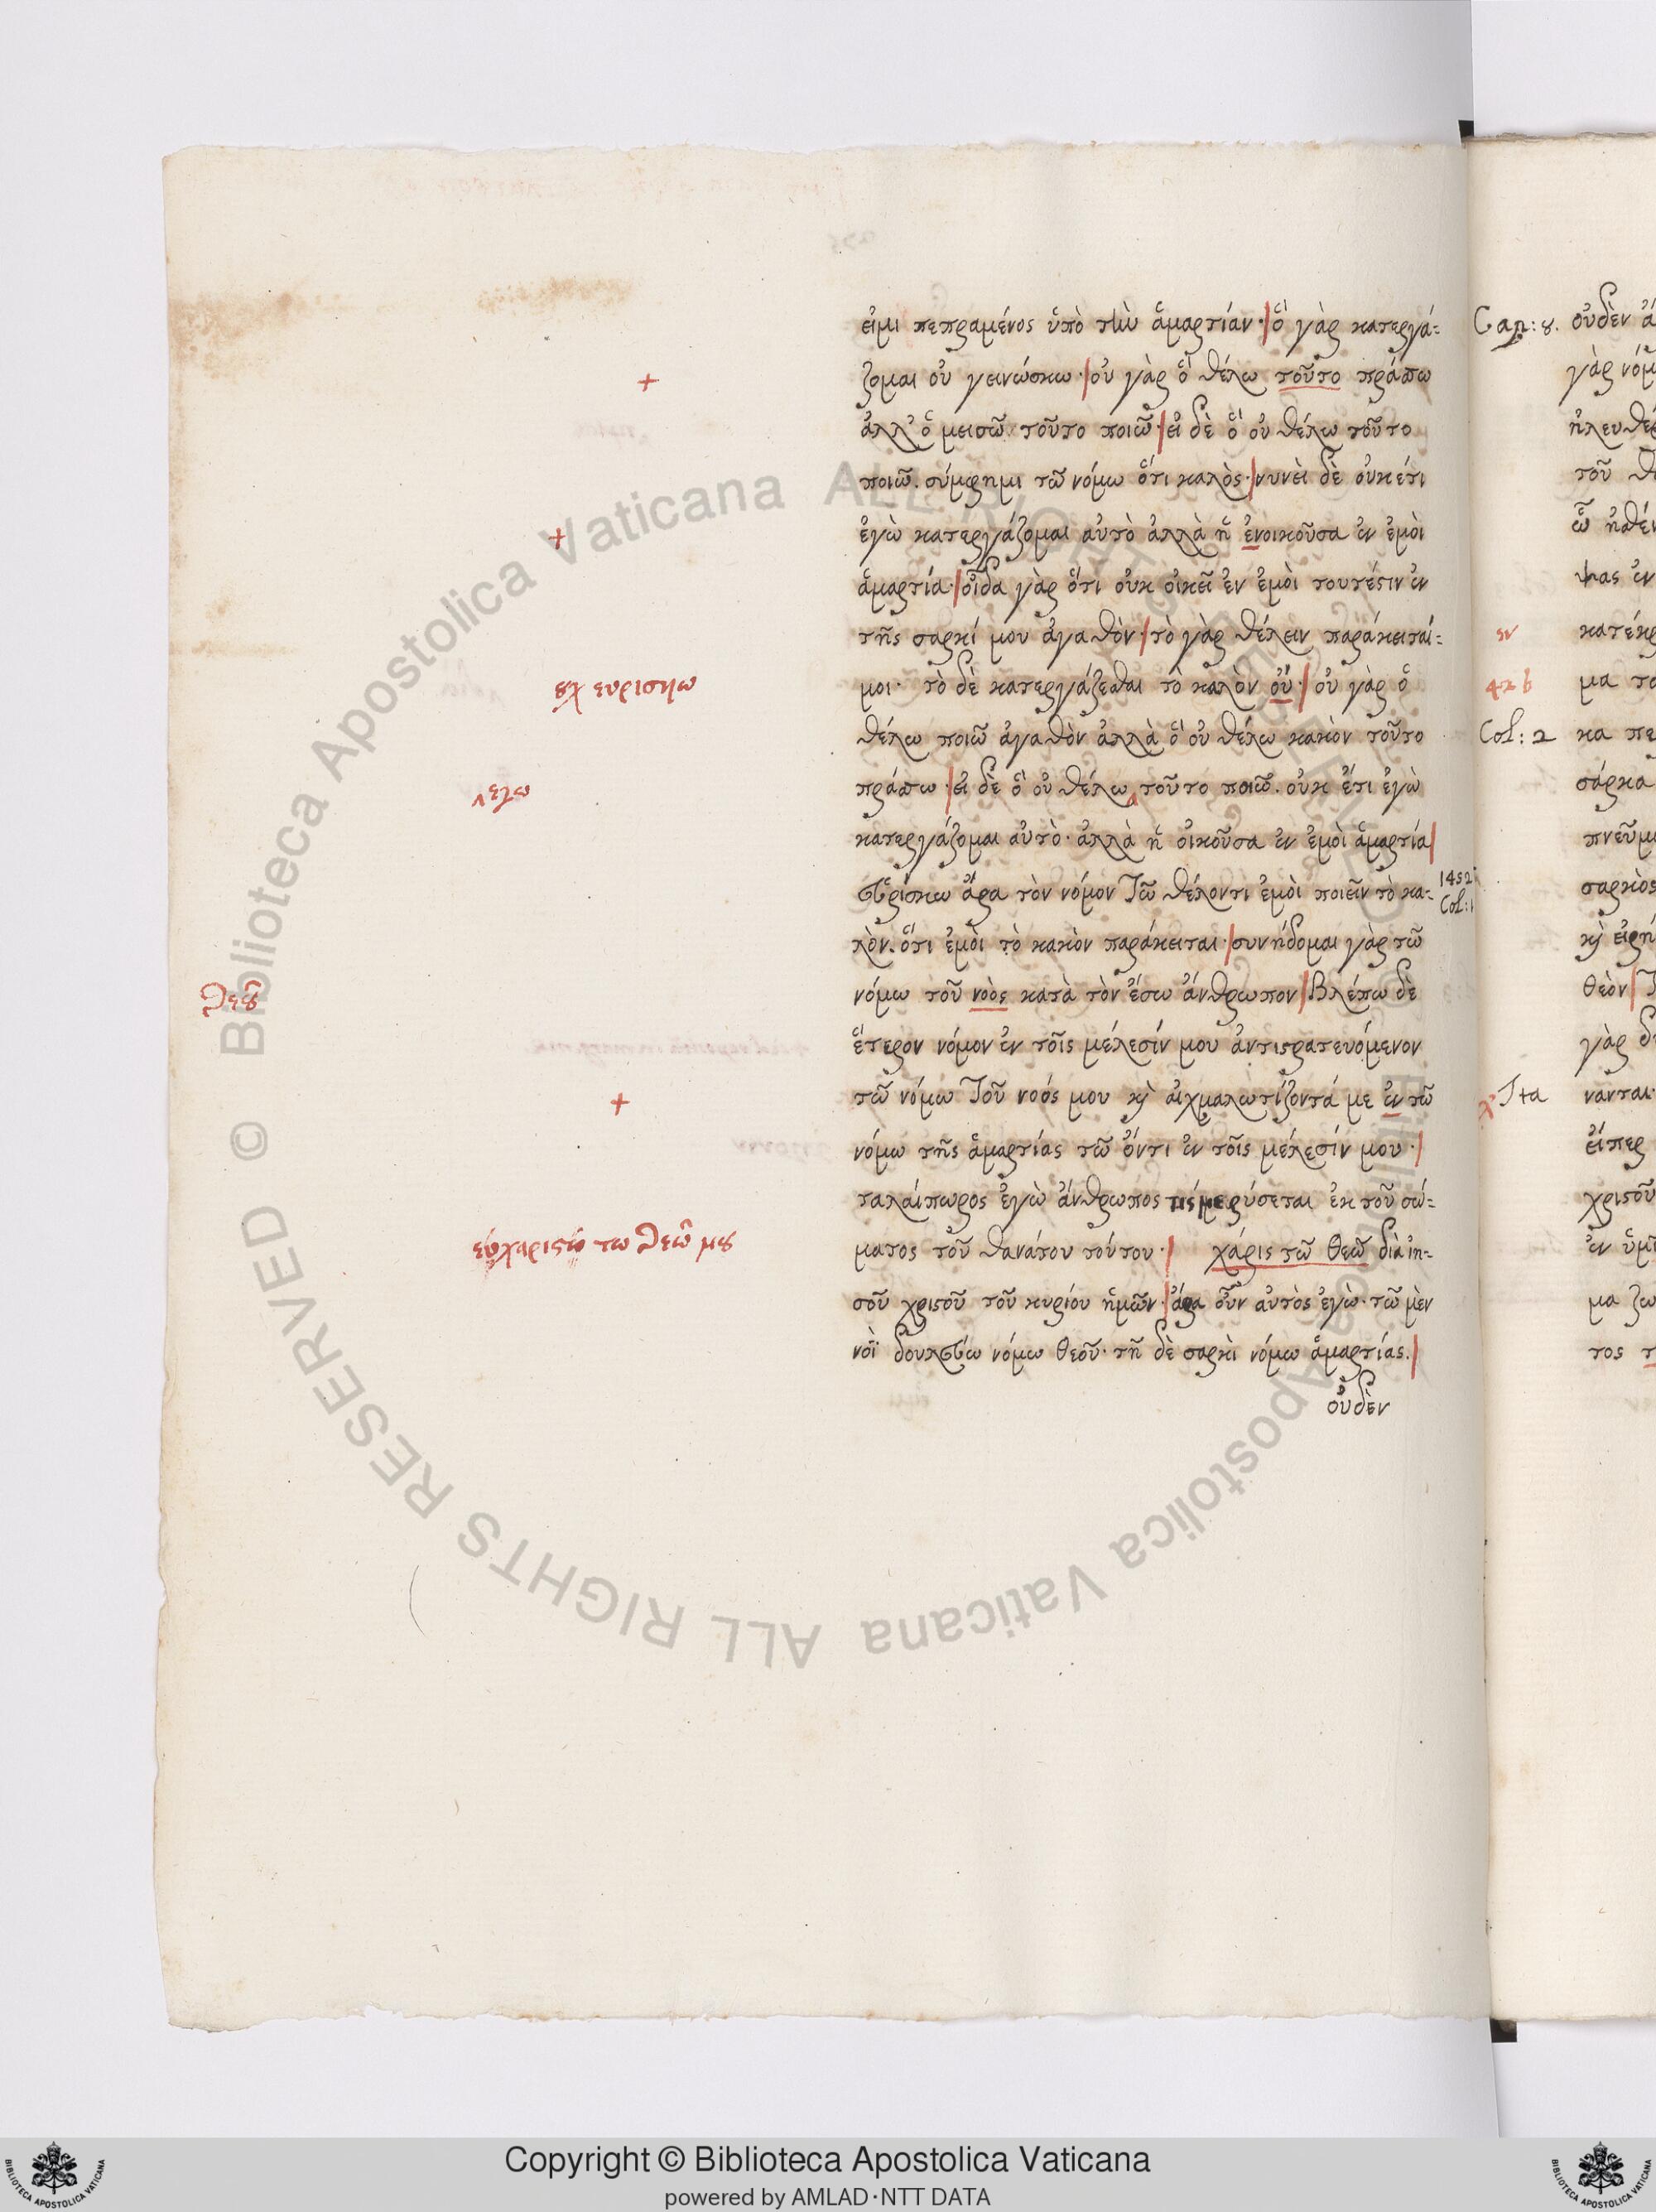 εἰμι πεπραμένος ὑπὸ τὴν ἁμαρτίαν· ὃ γὰρ κατεργά-
ζομαι οὐ γεινώσκω· οὐ γὰρ ὃ θέλω τοῦτο πράττω
ἀλλ' ὃ μεισῶ τοῦτο ποιῶ· εἰ δὲ ὃ οὐ θέλω τοῦτο
ποιῶ. σύμφημι τῶ νόμω ὅτι καλὸς· νυνεὶ δὲ οὐκέτι
ἐγὼ κατεργάζομαι αὐτὸ ἀλλὰ ἡ ἐνοικοῦσα ἐν ἐμοὶ
ἁμαρτία· οἶδα γὰρ ὅτι οὐκ οἰκεῖ ἐν ἐμοὶ τουτέστιν ἐν
τῆς σαρκί μου ἀγαθὸν· τὸ γὰρ θέλειν παράκειταί-
μοι· τὸ δὲ κατεργάζεσθαι τὸ καλὸν οὔ· οὐ γὰρ ὃ
θέλω ποιῶ ἀγαθὸν ἀλλὰ ὃ οὐ θέλω κακὸν τοῦτο
πράττω· εἰ δὲ ὃ οὐ θέλω τοῦτο ποιῶ. οὐκ έτι ἐγὼ
κατεργάζομαι αὐτὸ· ἀλλὰ ἡ οἰκοῦσα ἐν ἐμοὶ ἁμαρτία
εὑρίσκω ἄρα τὸν νόμον τῶ θέλοντι ἐμοὶ ποιεῖν τὸ κα-
λὸν. ὅτι ἐμοὶ τὸ κακὸν παράκειται· συνήδομαι γὰρ τῶ
νόμω τοῦ νοὸς κατὰ τὸν ἔσω ἄνθρωπον βλέπω δὲ
ἕτερον νόμον ἐν τοῖς μέλεσίν μου ἀντιστρατευόμενον
τῶ νόμω τοῦ νοός μου κὶ αἰχμαλωτίζοντά με ἐν τῶ
νόμω τῆς ἁμαρτίας τῶ ὄντι ἐν τοῖς μέλεσίν μου·
ταλαίπωρος ἐγὼ ἄνθρωπος τίς με ρύσεται ἐκ τοῦ σώ-
ματος τοῦ θανάτου τούτου· χάρις τῶ θεῶ διὰ ἰη-
σοῦ χριστοῦ τοῦ κυρίου ἡμῶν· ἄρα οὖν αὐτὸς ἐγὼ· τῶ μὲν
νοῒ δουλεύω νόμω θεοῦ· τῇ δὲ σαρκὶ νόμω ἁμαρτίας.
οὐδὲν
+
+
ȣχ ευρισκω
θεȣ͂
+
ευχαριστῶ τω θεῶ μȣ
1452
Col: 1
Cap: 8. οὐδὲν ἄ
γὰρ νόμ
ἠλευθέ
τοῦ θα
ὧ ἠσθέν
ψας ἐν
κατέκρ
42 b μα το
Col: 2 κα πε
σάρκα
πνεῦμα
σαρκὸς
κὶ εἰρή
θεὸν
γὰρ δ
Ita νανται·
εἴπερ
χριστοῦ
ἐν ὑμῖ
μα ζω
τος τ
Copyright © Biblioteca Apostolica Vaticana
powered by AMLAD·NTT DATA
© Biblioteca Apostolica Vaticana ALL RIGHTS RESERVED